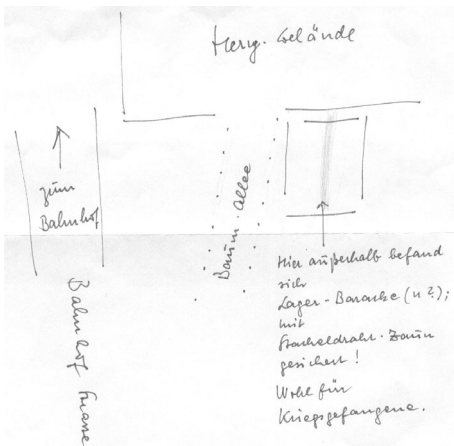 Herag. Gelände
zum
Bahnhof
Baum-Allee
Bahnhof Strasse
Hier außerhalb befand
sich
Lager-Baracke (n?);
mit
Stacheldraht-Zaun
gesichert!
Wohl für
Kriegsgefangene.